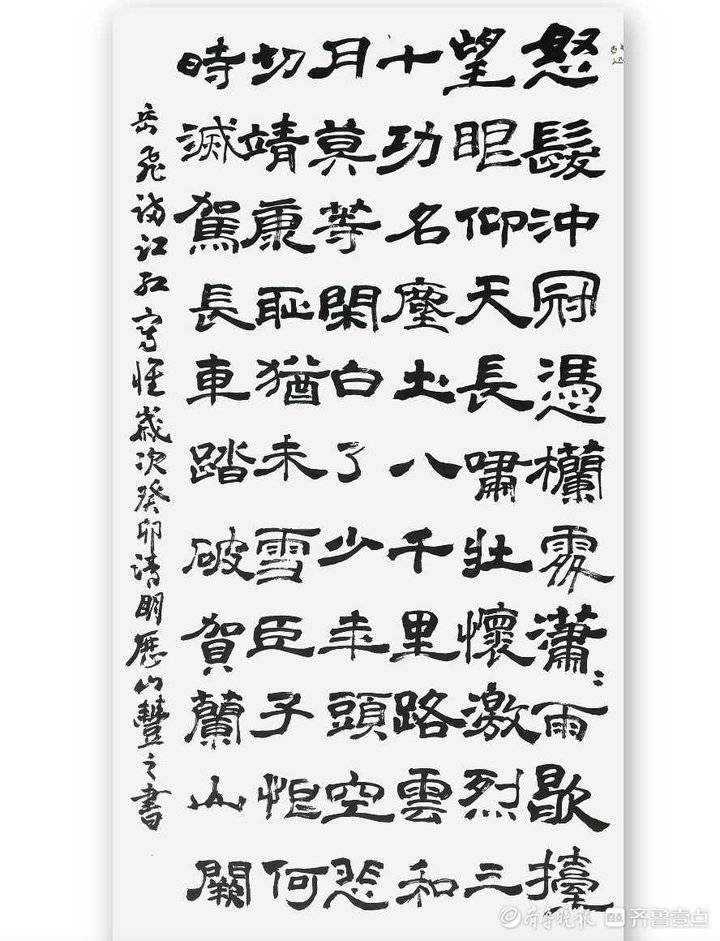 怒髮沖冠憑欄處瀟〻雨歇擡
望眼仰天長嘯壯懷激烈三
十功名塵土八千里路雲和
月莫等閑白了少年頭空悲
切靖康恥猶未雪臣子恨何
時滅駕長車踏破賀蘭山闕
岳飛滿江紅寫懷歲次癸卯清明歷山豐之書
齐鲁晚报 齐鲁壹点